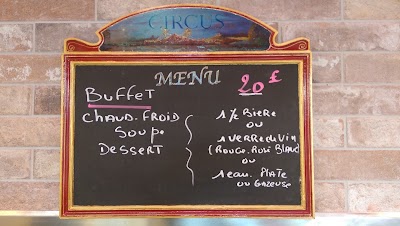 CIRCUS
MENU
20£
BuffeT
CHAUD.FROID
Soupe
Dessert
1/2 Biere
ou
1 verre de vin
(Rouge.Rosé Blanc)
ou
1 eau. Plate
ou Gazeuse